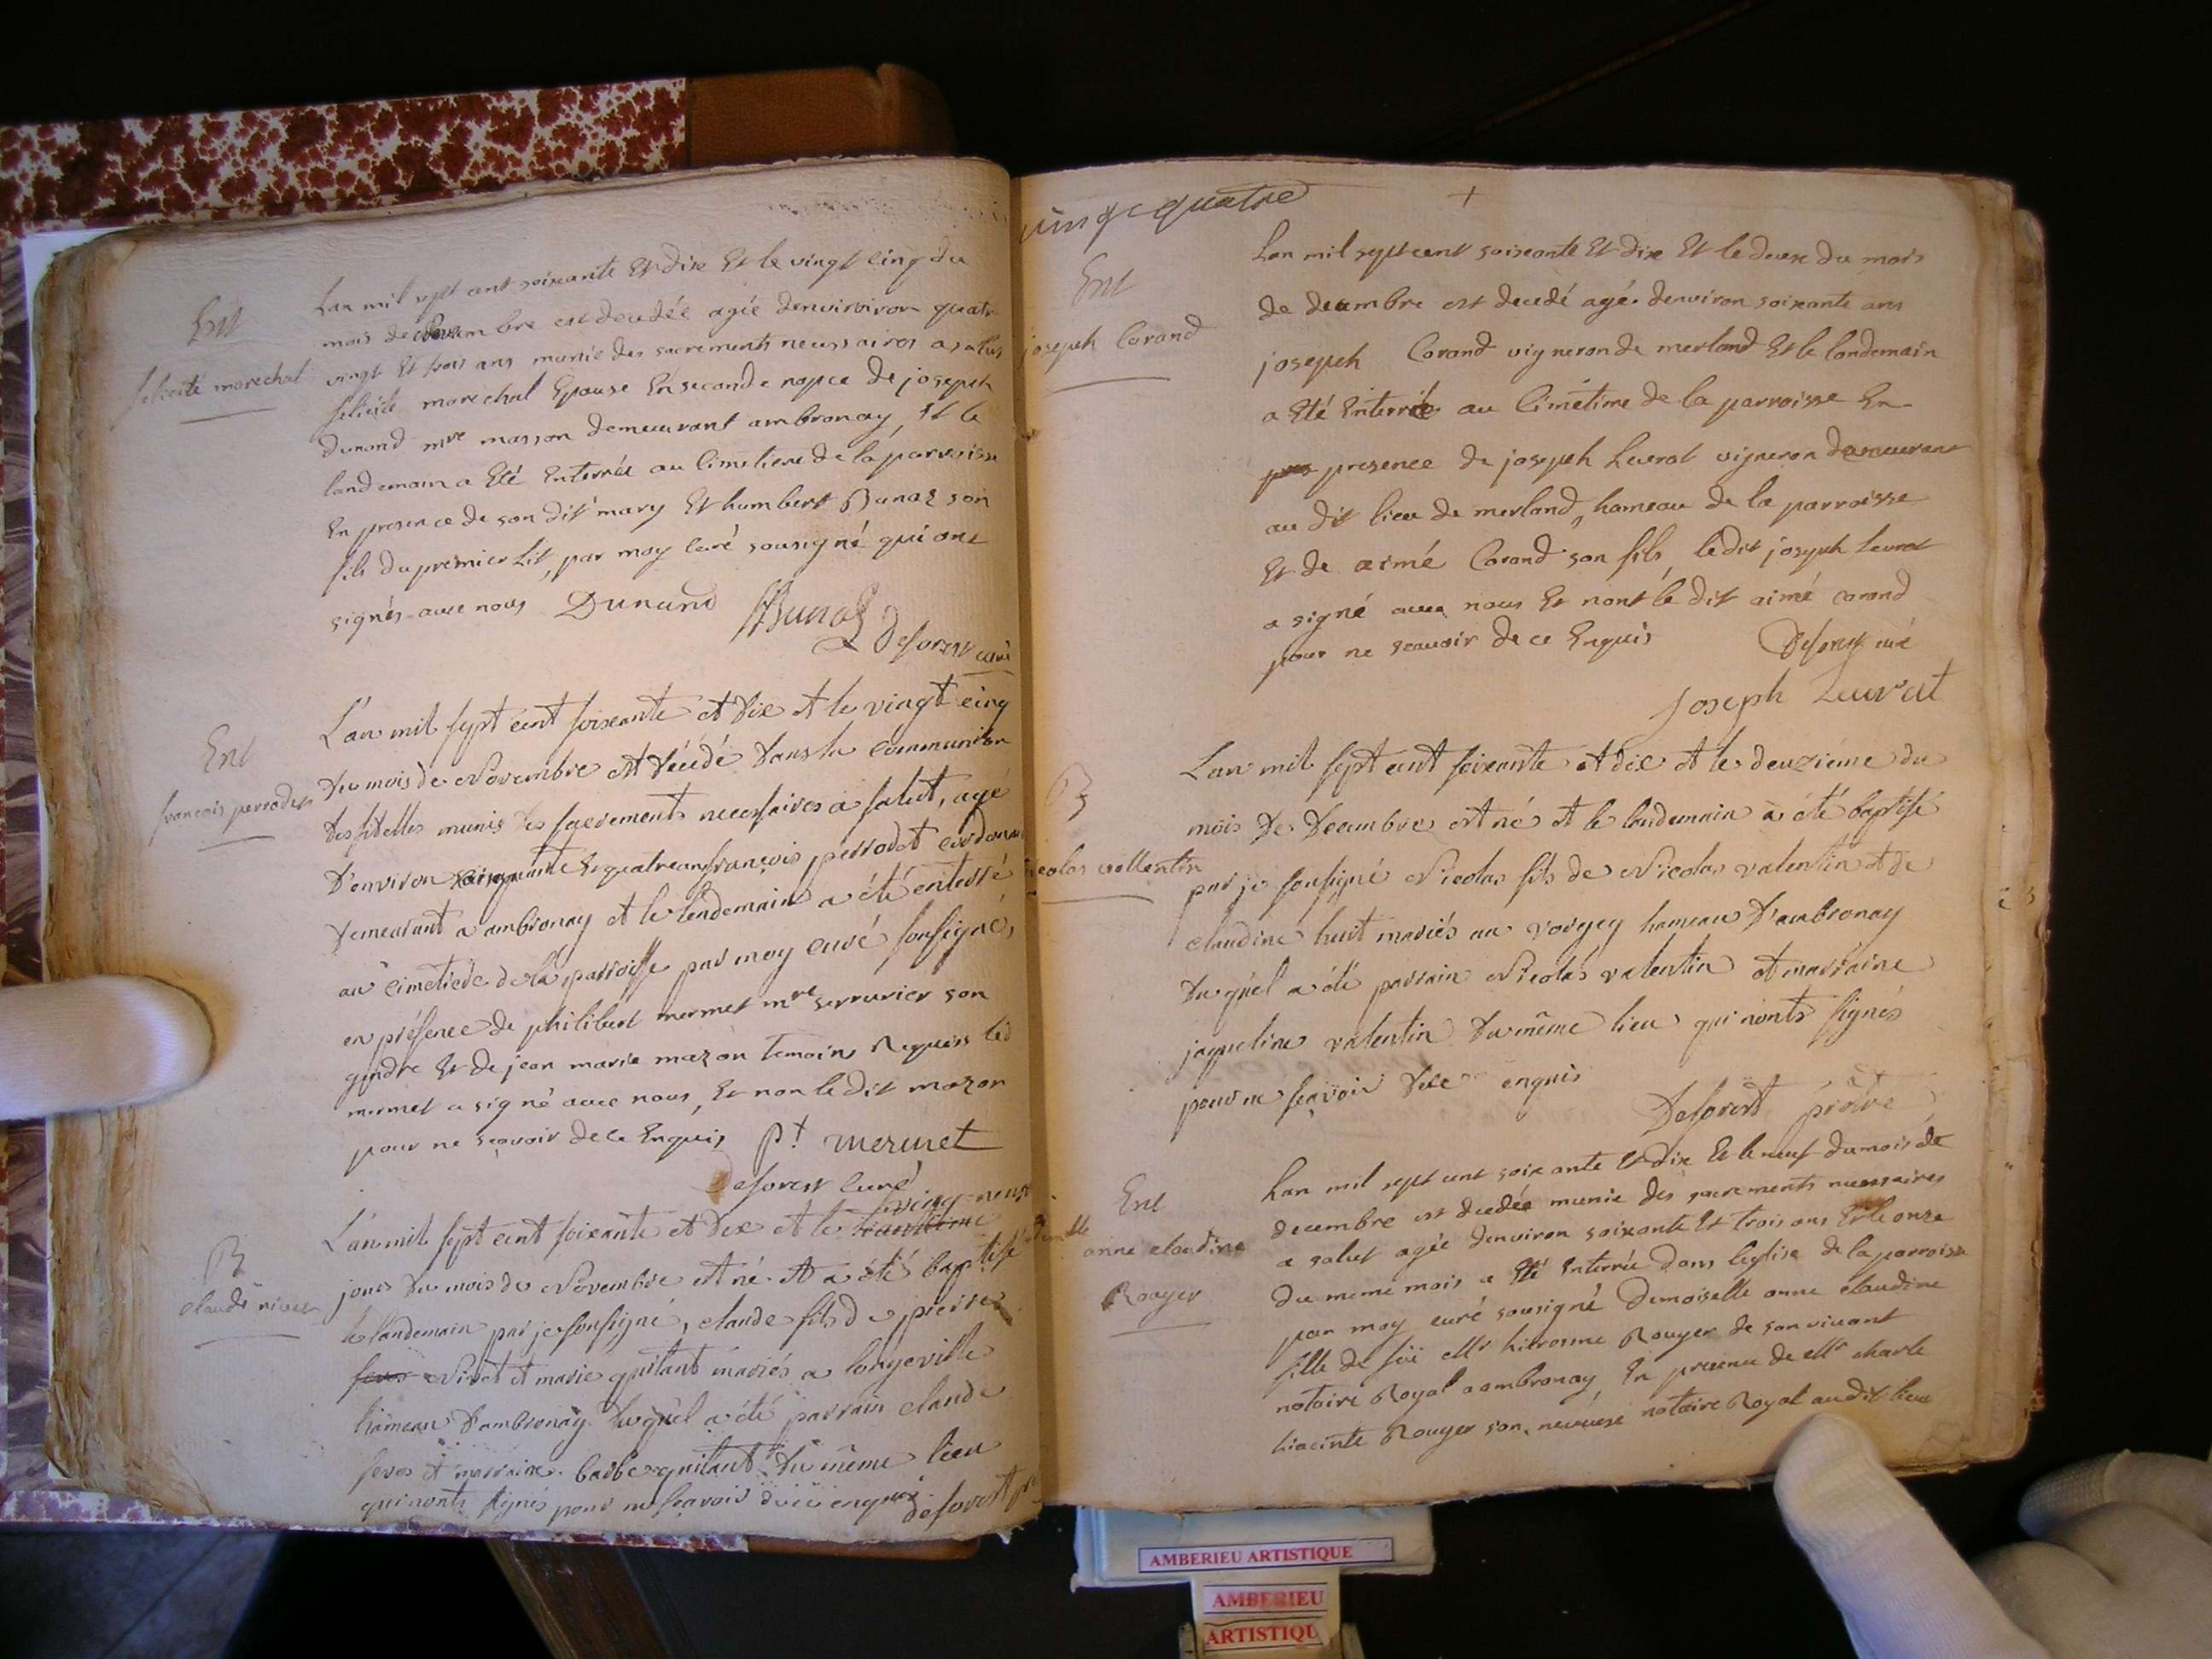 Ent
felicité marechal
Lan mil sept cent soixante Et dix Et le vingt cinq du
mois de novembre est decedée agée denviroiron quatre
vingt Et trois ans munie des sacrements necessaires a salut
felicité marechal Epouse En seconde nopce de joseph
Dunand mre masson demeurant ambronay, Et le
landemain a Eté Enterrée au Cimetiere de la parroisse
En presence de son dit mary Et humbert Bunaz son
fils du premier Lit, par moy Curé sousigné qui ont
signés avec nous Dunand HBunaz
Deforest curé
Ent
francois perrodet
L'an mil sept cent soixante et dix et le vingt cinq
du mois de Novembre est décédé dans la communion
des fidelles munis des sacrements necessaires a salut, agé
d'environ cinquante Et quatre ans françois perrodet cordonnier
demeurant a ambronay et le lendemain a été enterré
au cimetiere de la parroisse par moy curé sousigné,
en présence de philibert mermet mre serrurier son
gendre Et de jean marie mazon temoins Requis led
mermet a signé avec nous, Et non le dit mazon
pour ne sçavoir de ce Enquis pt mermet
Deforest Curé
B
claude nivet
L'an mil sept cent soixante et dix et le vingt neuf
jour du mois de Novembre est né et a été baptisé
le landemain par je sousigné, claude fils de pierre
Nivet et marie quitant mariés a longeville
hameau d'ambronay duquel a été parrain claude
feros et marraine barbe quitant du même lieu
qui n'onts signés pour ne sçavoir de ce enquis deforest ptre
vingt quatre
+
Ent
joseph Corand
Lan mil sept cent soixante Et dix Et le deux du mois
de decembre est decedé agé denviron soixante ans
joseph Corand vigneron de merland Et le landemain
a Eté Enterré au Cimetime de la parroisse En
presence de joseph Leurat vigneron demeurant
au dit lieu de merland, hameau de la parroisse
Et de aimé Corand son fils, ledit joseph Leurat
a signé avec nous Et nont le dit aimé corand
pour ne scavoir de ce Enquis Deforest curé
Joseph Leurat
B
nicolas vallentin
L'an mil sept cent soixante et dix et le deuzième du
mois de Decembre est né et le landemain a été baptisé
par je sousigné Nicolas fils de Nicolas valentin et de
claudine huit mariés au vorgey hameau d'ambronay
duquel a été parrain Nicolas valentin et marraine
jaqueline valentin du même lieu qui n'onts signés
pour ne sçavoir de ce enquis
Deforest prêtre
Ent
demlle anne claudine
Rouyer
Lan mil sept cent soixante Et dix Et le neuf du mois de
decembre est decedée munie des sacrements necessaires
a salut agée denviron soixante Et trois ans Et le onze
du meme mois a Eté Enterrée dans leglise de la parroisse
par moy curé sousigné Demoiselle anne claudine
fille de feü Mr hierosme Rouyer de son vivant
notaire Royal a ambronay, En presence de Mr charle
hiacinte Rouyer son neuveu notaire Royal audit lieu
AMBERIEU ARTISTIQUE
AMBERIEU
ARTISTIQU